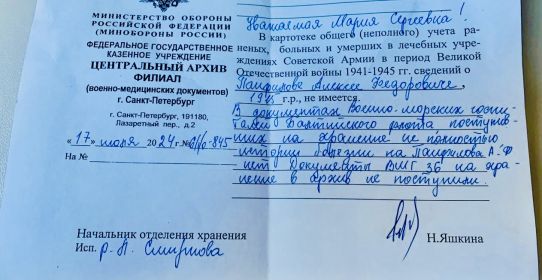 МИНИСТЕРСТВО ОБОРОНЫ
РОССИЙСКОЙ ФЕДЕРАЦИИ
(МИНОБОРОНЫ РОССИИ)
ФЕДЕРАЛЬНОЕ ГОСУДАРСТВЕННОЕ
КАЗЕННОЕ УЧРЕЖДЕНИЕ
ЦЕНТРАЛЬНЫЙ АРХИВ
ФИЛИАЛ
(военно-медицинских документов)
г. Санкт-Петербург
г. Санкт-Петербург, 191180,
Лазаретный пер., д.2
«17» июля 2024 г. № 845
На №
Уважаемая Мария Сергеевна!
В картотеке общего (неполного) учета ра-
неных, больных и умерших в лечебных учре-
ждениях Советской Армии в период Великой
Отечественной войны 1941-1945 гг. сведений о
Панфилове Алексее Федоровиче,
г.р., не имеется.
В документах Военно-морских госпи-
талей Балтийского флота поступив-
ших на хранение не полностью
истории болезни на Панфилова А.Ф
нет. Документы ВМГ 36 на хра-
нение в архив не поступили.
Начальник отделения хранения
Исп. р.А. Смирнова
Н.Яшкина